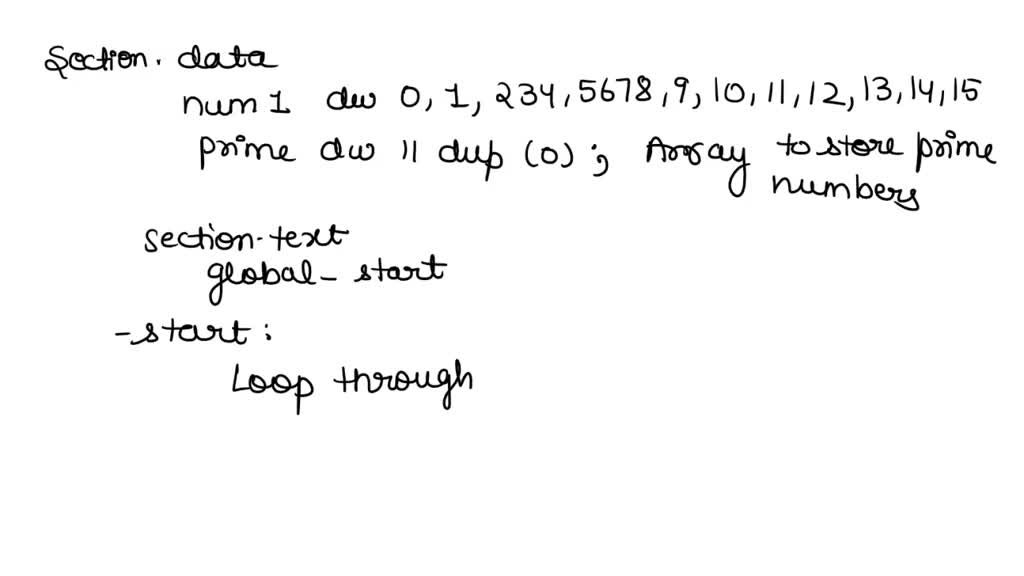 Section. data
num 1 dw 0, 1, 234, 5678, 9, 10, 11, 12, 13, 14, 15
prime dw 11 dup (0) ; Array to store prime
numbers
section.text
global_ start
_start :
Loop through